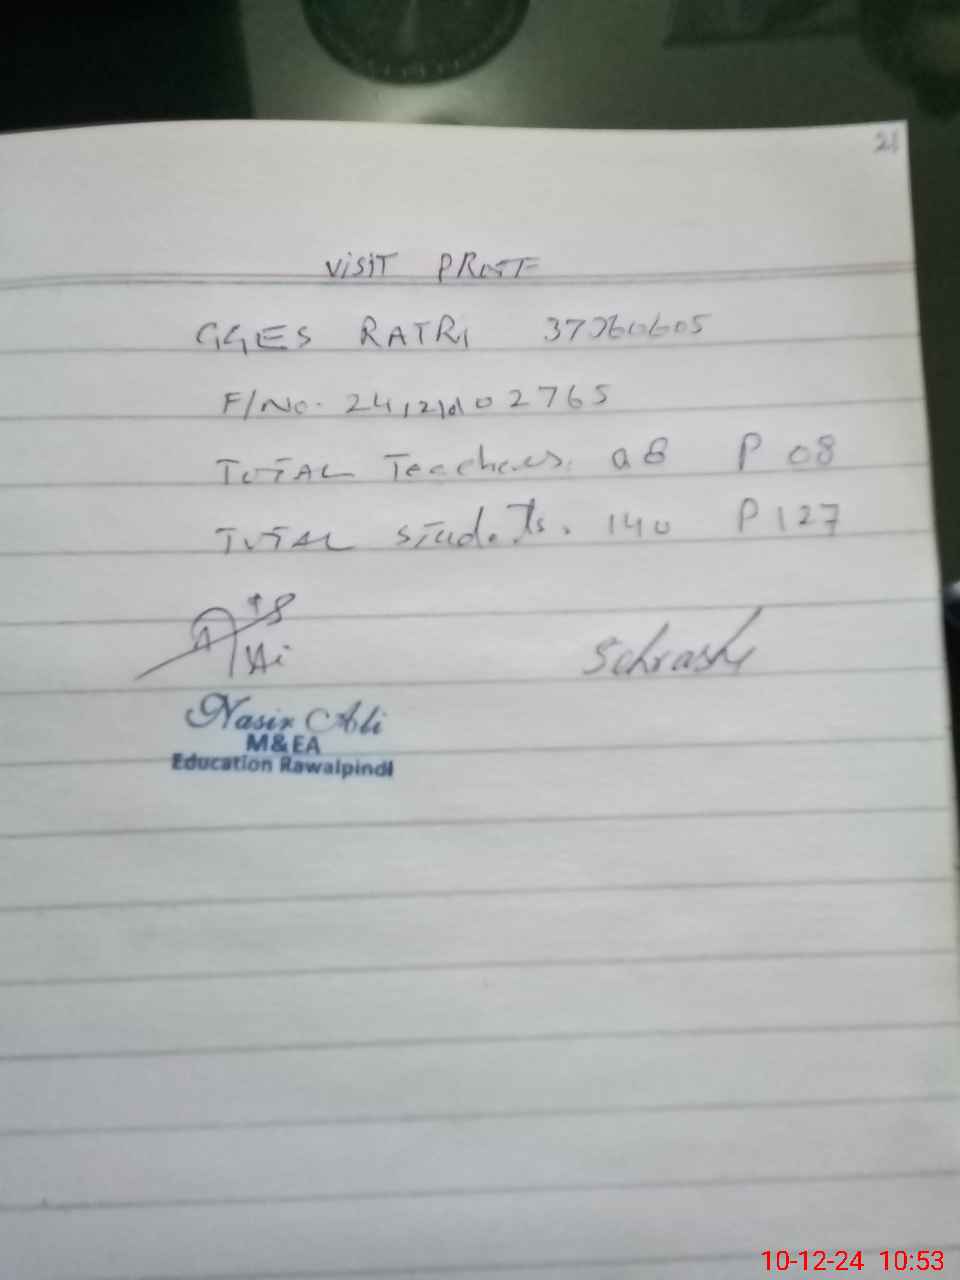 21
VISIT PROOF
GGES RATRI 37360605
F/No. 24121002765
TOTAL Teachers. 08 P 08
TOTAL Students. 140 P 127
Nasir Ali
M&EA
Education Rawalpindi
10-12-24 10:53